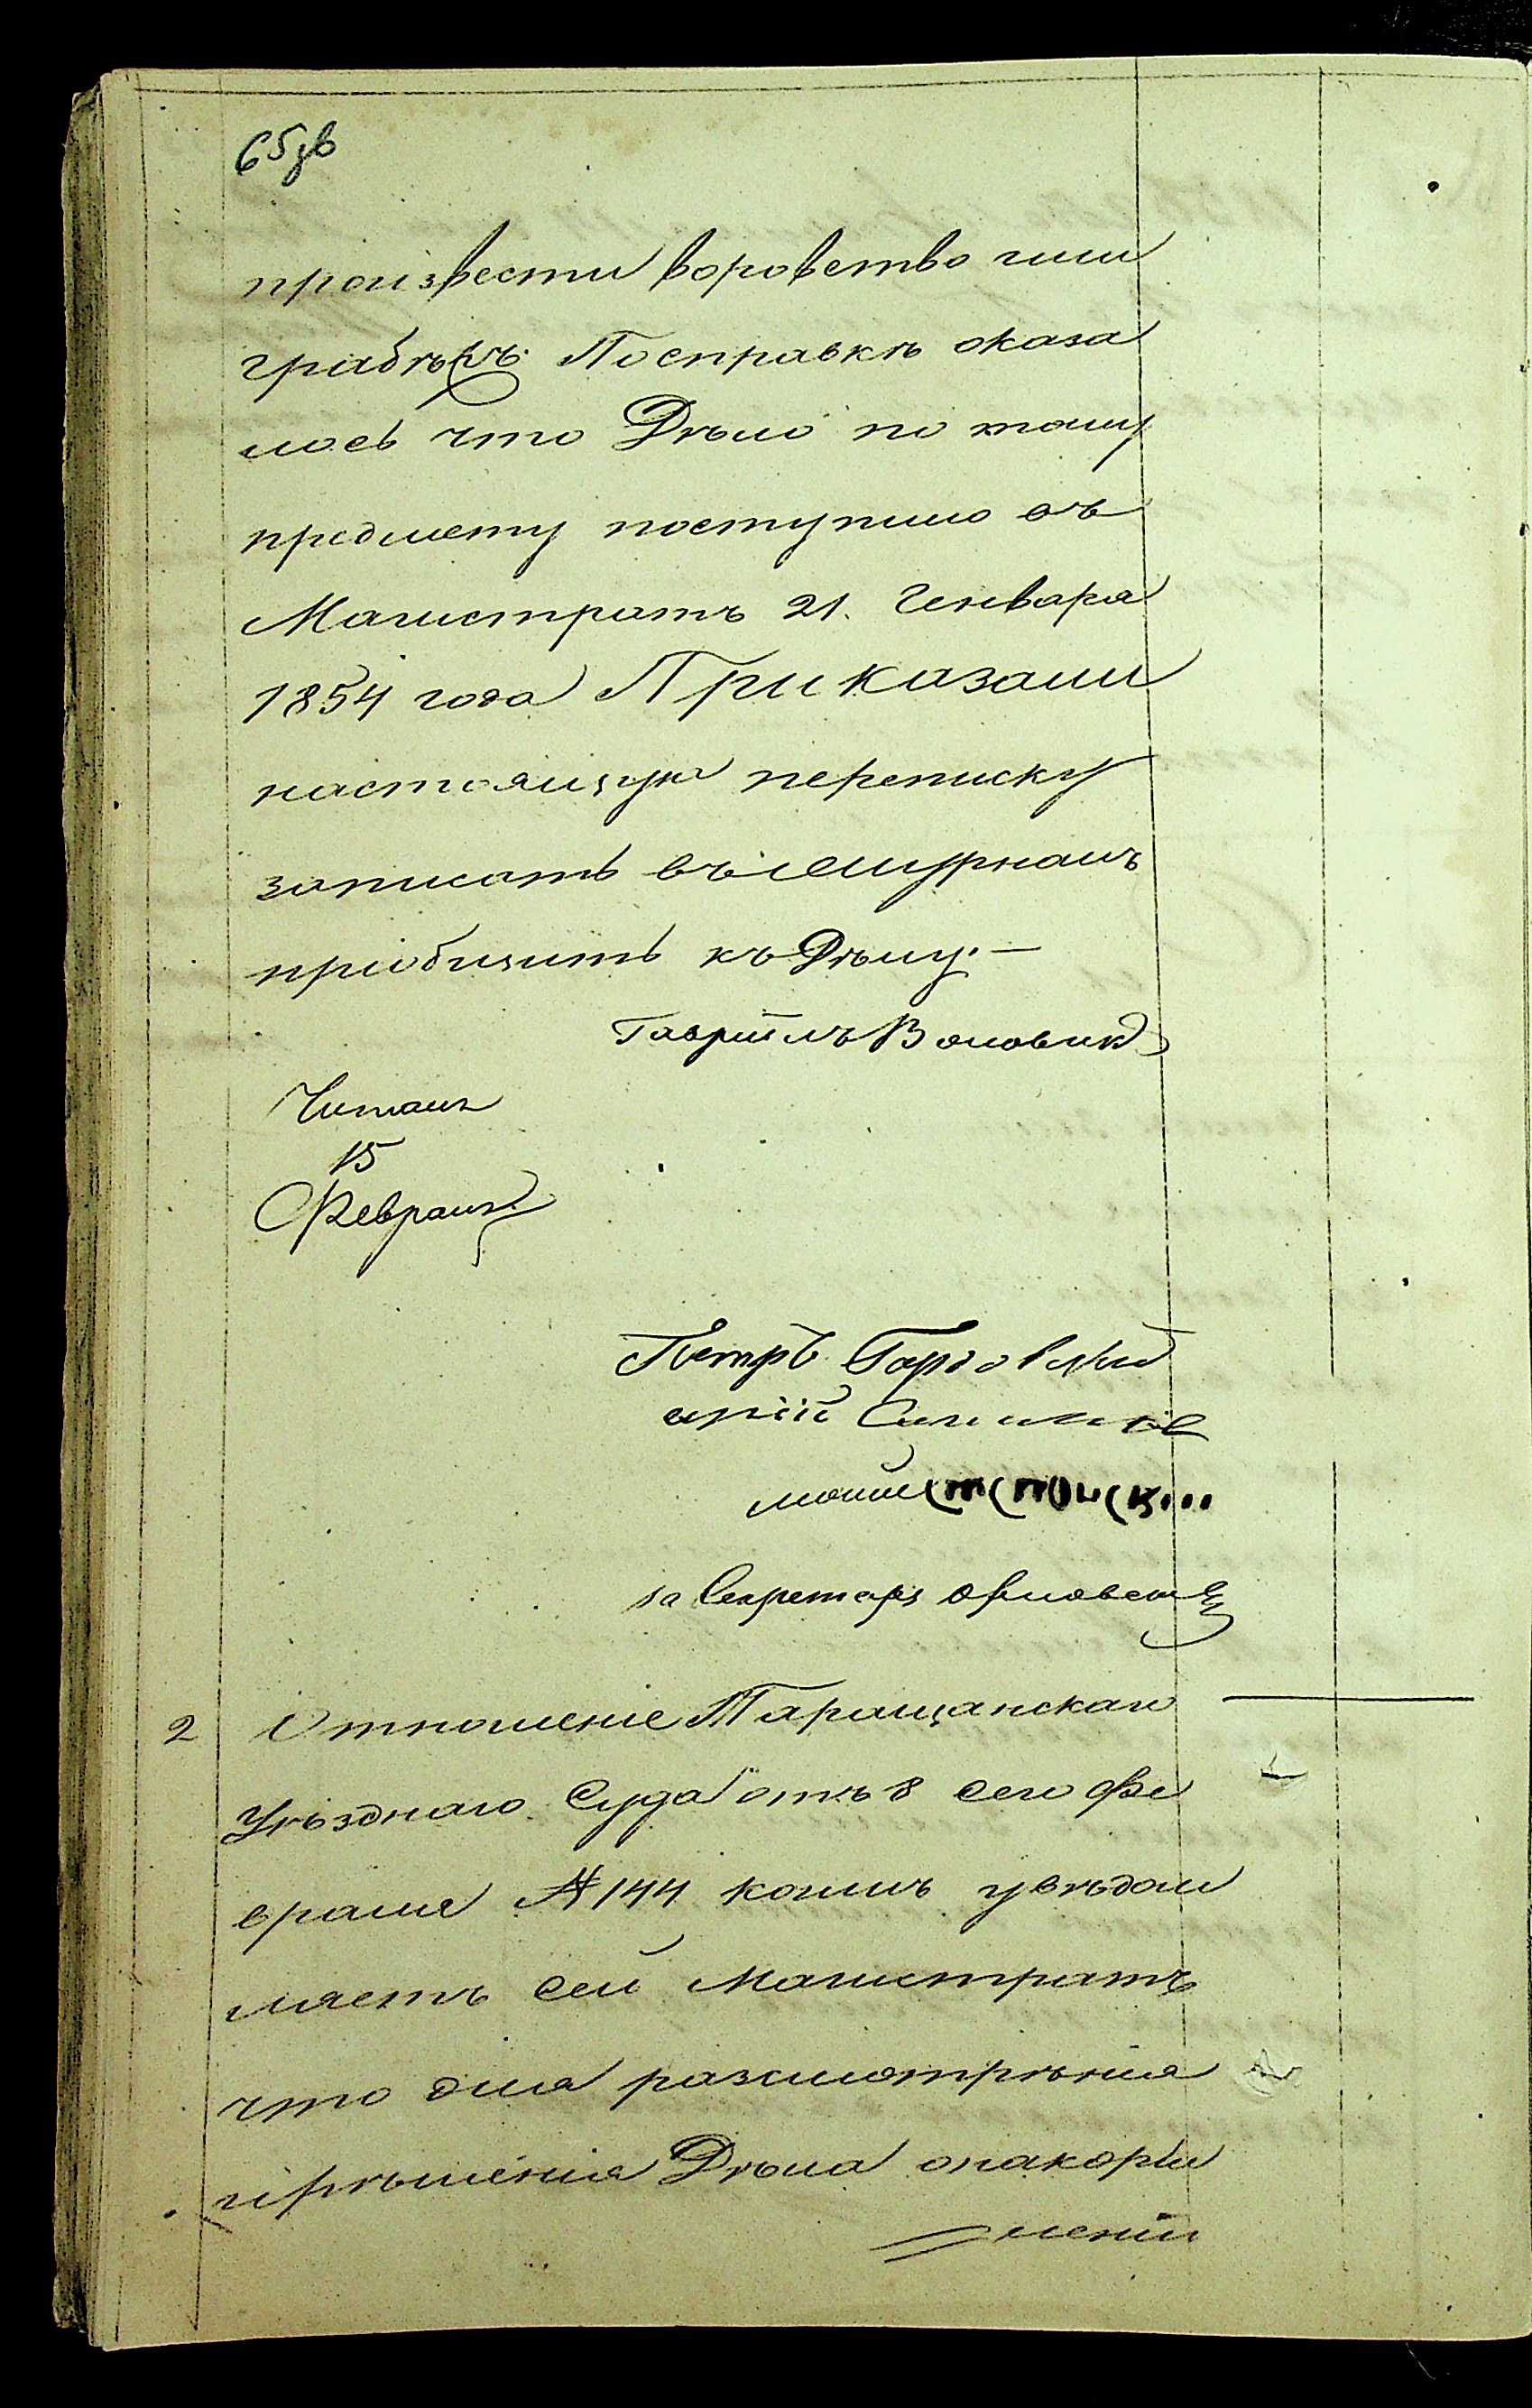 65 зв
произвести воровство или
грабѣжъ. Посправкѣ оказа
лось что Дѣло по тому
предмету поступило въ
Магистратъ 21. Генваря
1854 года Приказали
настоящую переписку
записать въ журналъ
пріобщить къ Дѣлу.—
Гавріилъ Воловик
Читалъ
15
Февраля
Петръ
за Секретаря
2 Отношеніе Таращанскаго
Уѣзднаго Суда отъ 8 сего Фе
враля № 144 коимъ увѣдом
ляетъ сей Магистратъ
что для разсмотрѣнія
и рѣшенія Дѣла онакорм
леніи